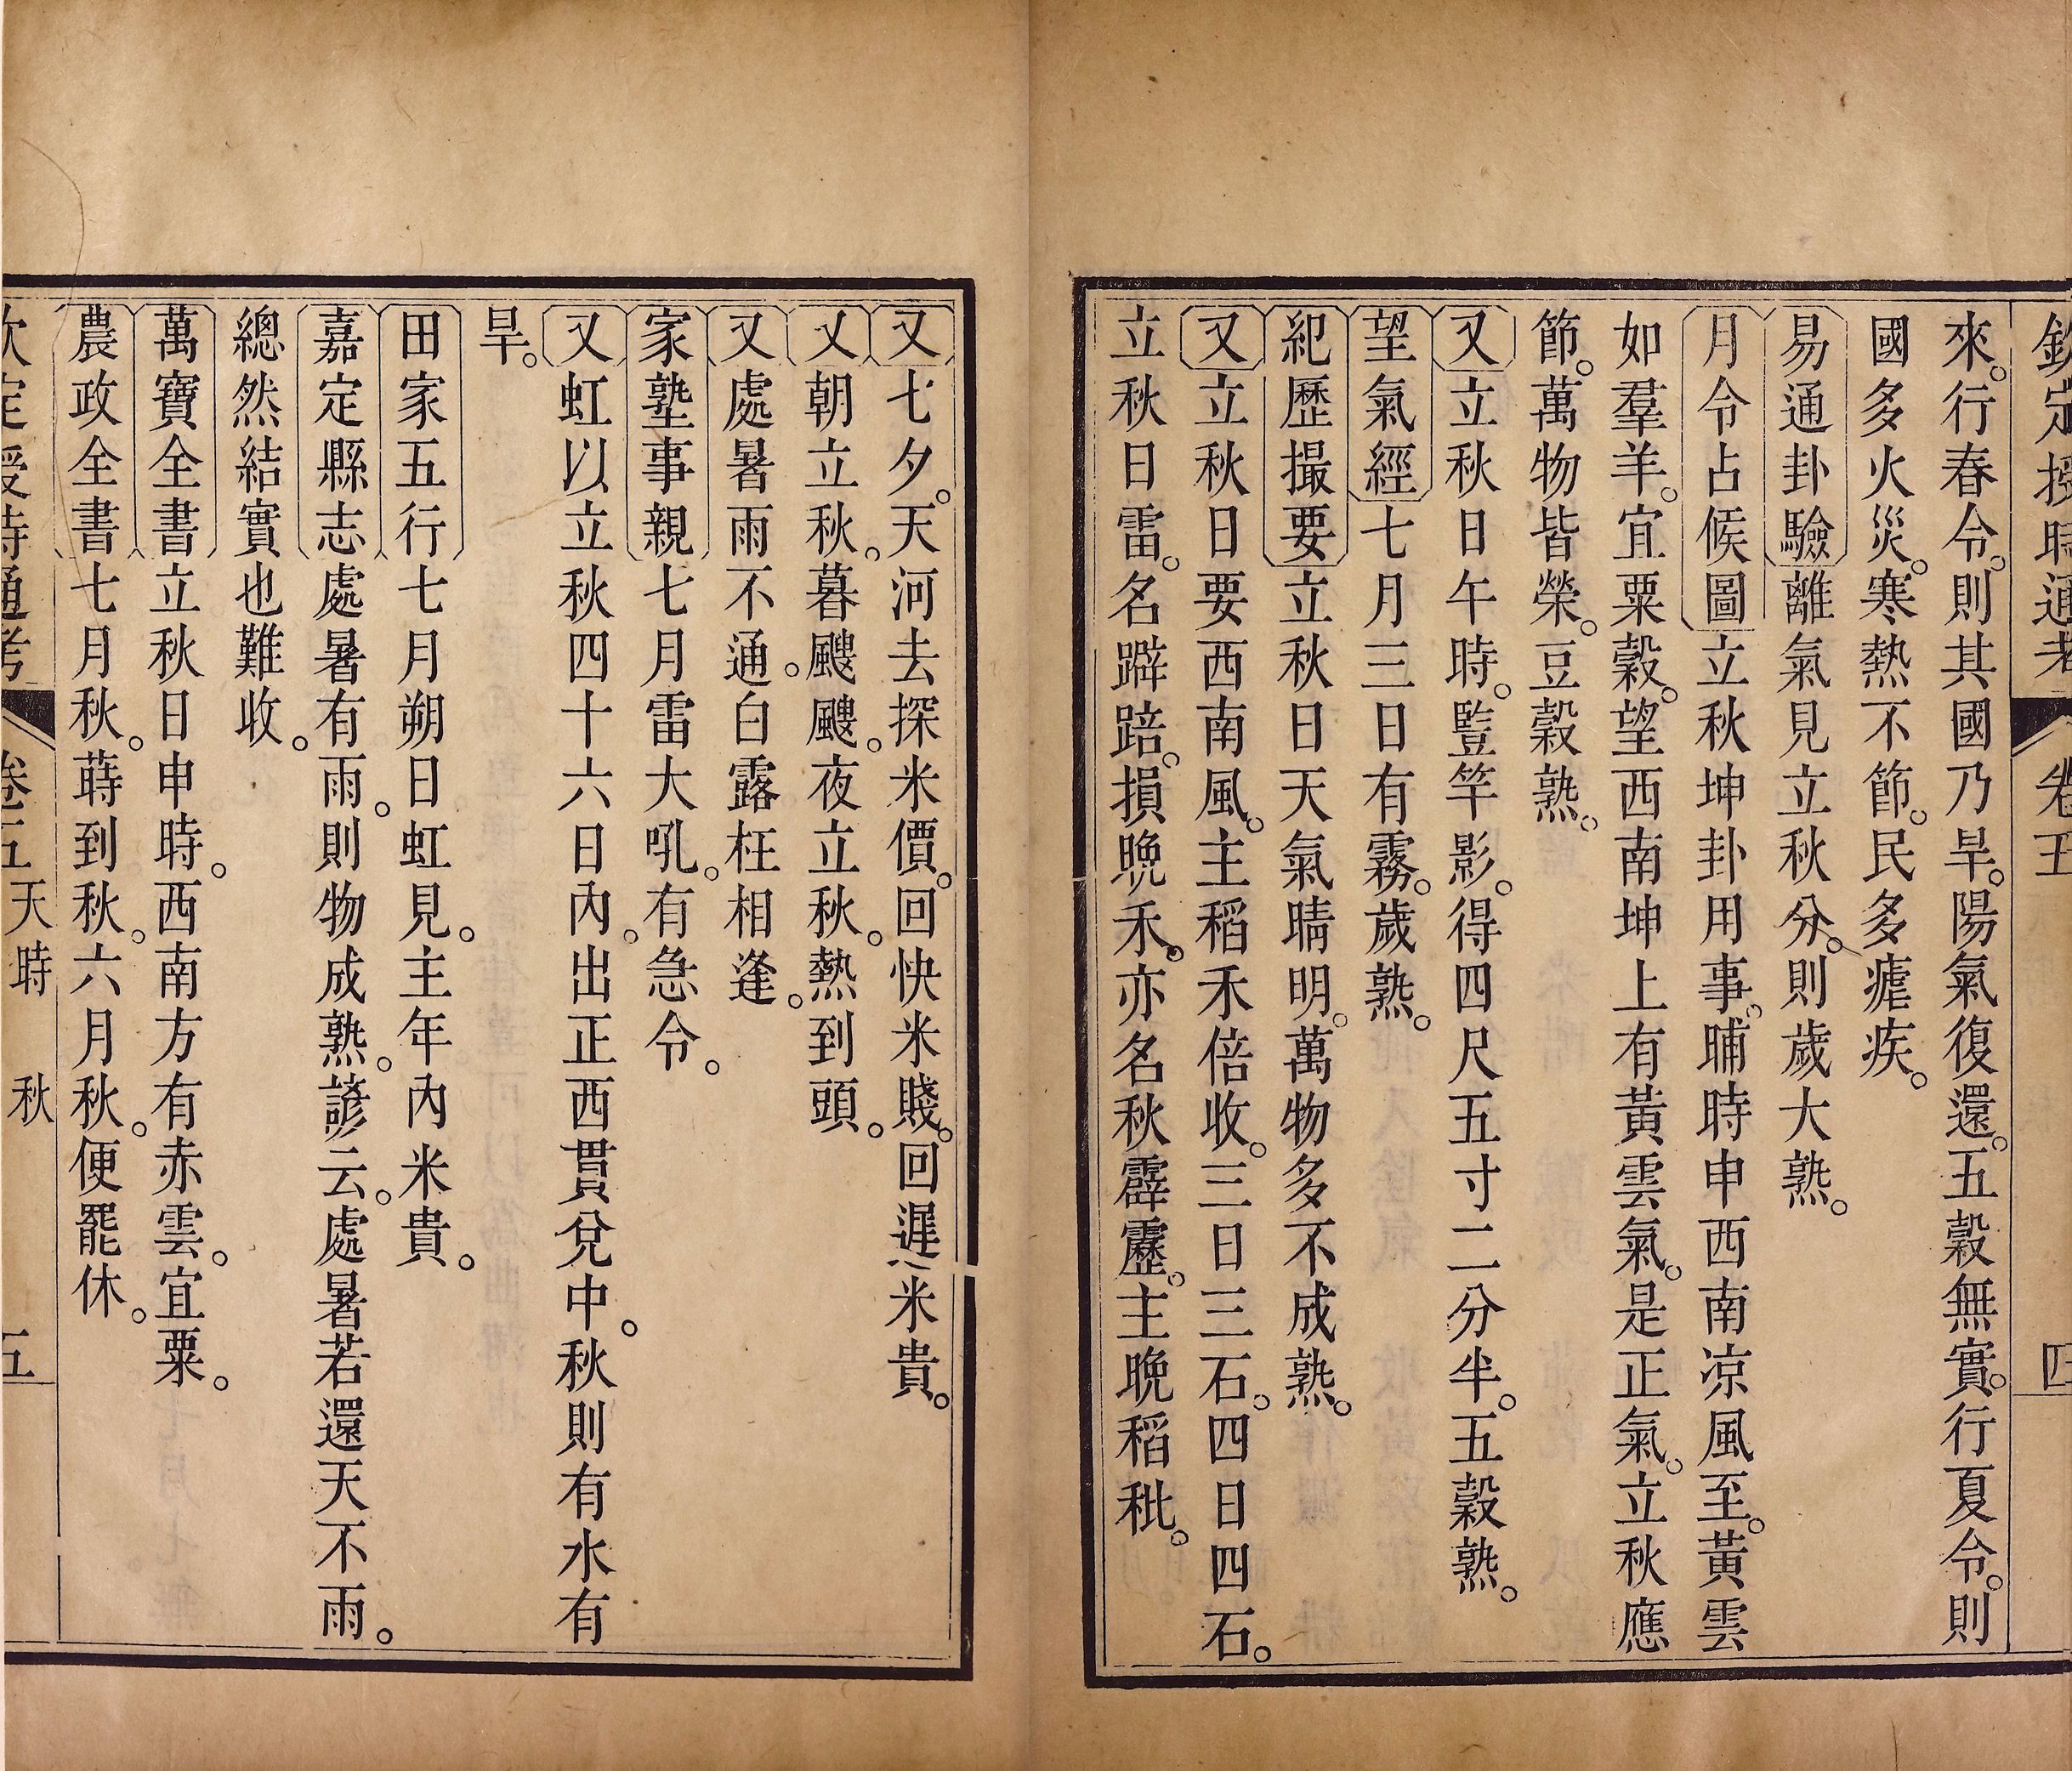 欽定授時通考 卷五 四
來。行春令。則其國乃旱。陽氣復還。五穀無實。行夏令。則
國多火災。寒熱不節。民多瘧疾。
易通卦驗離氣見立秋分。則歲大熟。
月令占候圖立秋坤卦用事。晡時申西南涼風至。黃雲
如羣羊。宜粟穀。望西南坤上有黃雲氣。是正氣。立秋應
節。萬物皆榮。豆穀熟。
又立秋日午時。豎竿影。得四尺五寸二分半。五穀熟。
望氣經七月三日有霧。歲熟。
紀歷撮要立秋日天氣晴明。萬物多不成熟。
又立秋日要西南風。主稻禾倍收。三日三石。四日四石。
立秋日雷。名躃踣。損晚禾。亦名秋霹靂。主晚稻秕。
又七夕。天河去探米價。回快米賤。回遲米貴。
又朝立秋。暮颼颼。夜立秋。熱到頭。
又處暑雨不通。白露枉相逢。
家塾事親七月雷大吼。有急令。
又虹以立秋四十六日內。出正西貫兌中。秋則有水有
旱。
田家五行七月朔日虹見。主年內米貴。
嘉定縣志處暑有雨。則物成熟。諺云。處暑若還天不雨。
總然結實也難收。
萬寶全書立秋日申時。西南方有赤雲。宜粟。
農政全書七月秋。蒔到秋。六月秋。便罷休。
欽定授時通考 卷五 天時 秋 五